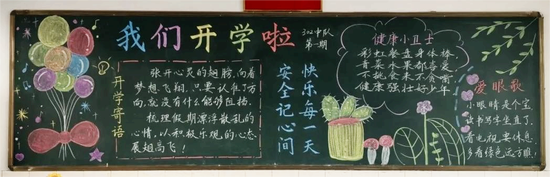 我们开学啦
302中队
第一期
开学寄语
张开心灵的翅膀,向着
梦想飞翔,只要认准方
向,就没有什么能够阻挡。
梳理假期漂浮散乱的
心情,以积极乐观的心态
展翅高飞!
快乐每一天
安全记心间
健康小卫士
彩虹餐盘身体棒,
青菜水果都喜爱。
不挑食来不贪嘴,
健康强壮好少年
爱眼歌
小眼睛是个宝
读书写字坐直了,
看电视要休息,
多看绿色远方眺!